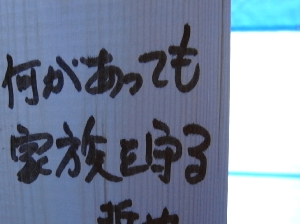 何があっても
家族を守る